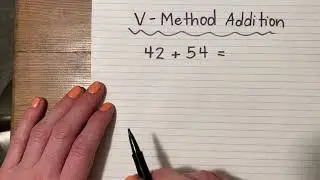 V-Method Addition
42 + 54 =